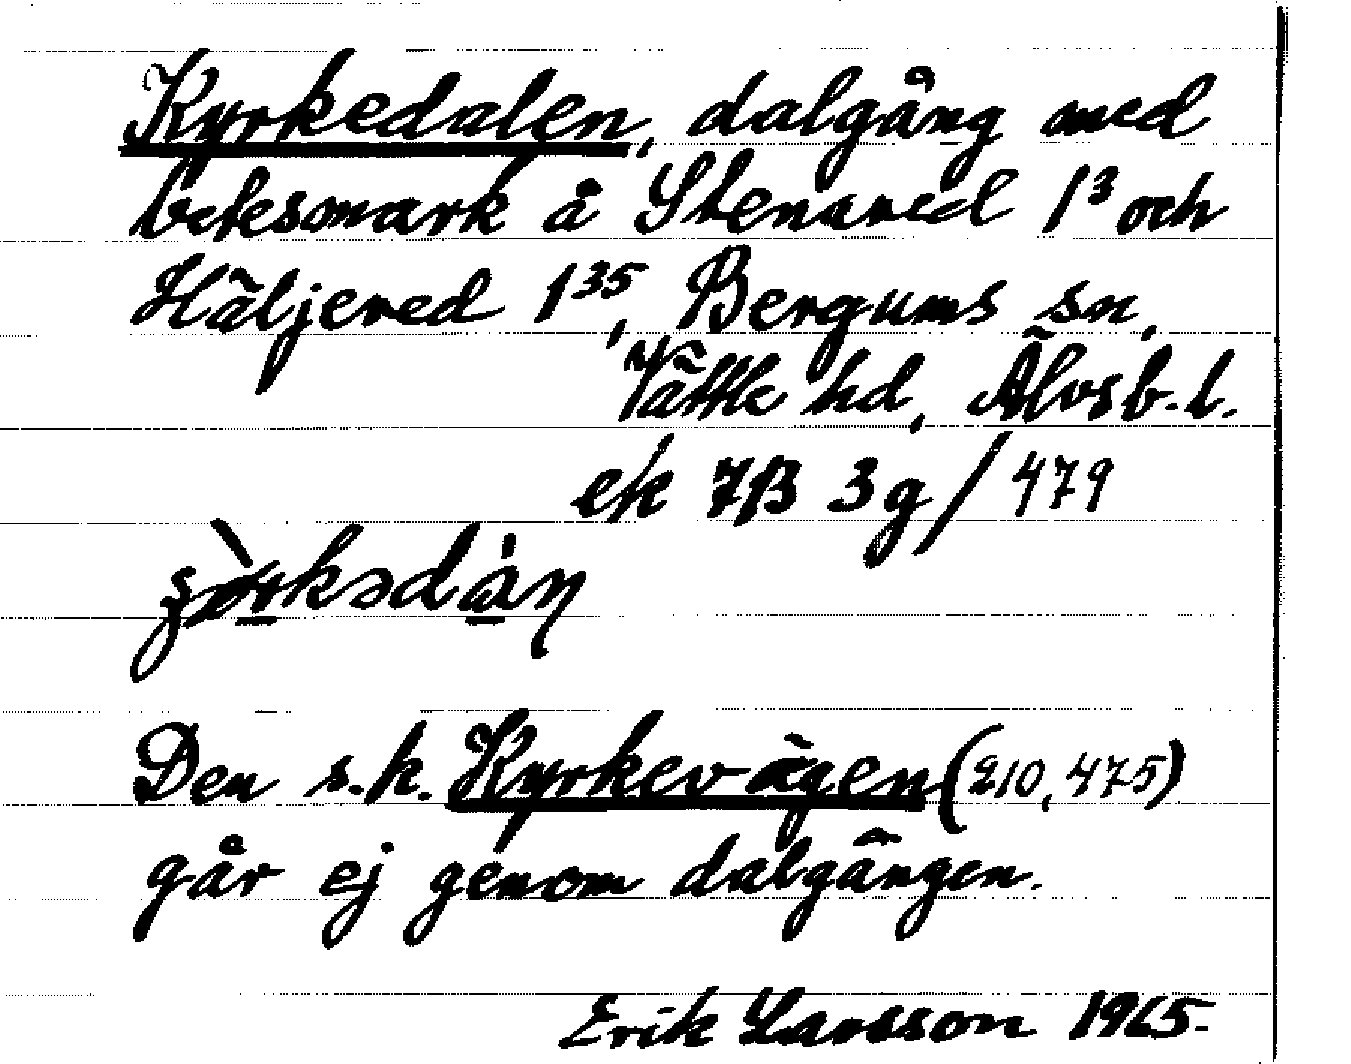 Kyrkedalen, dalgång med
betesmark å Stenared 1³ och
Häljered 1³⁵, Bergums sn,
Vättle hd, Älvsb. l.
ek 7B 3g/479
Den s.k. Kyrkevägen (210, 475)
går ej genom dalgången.
Erik Larsson 1965.